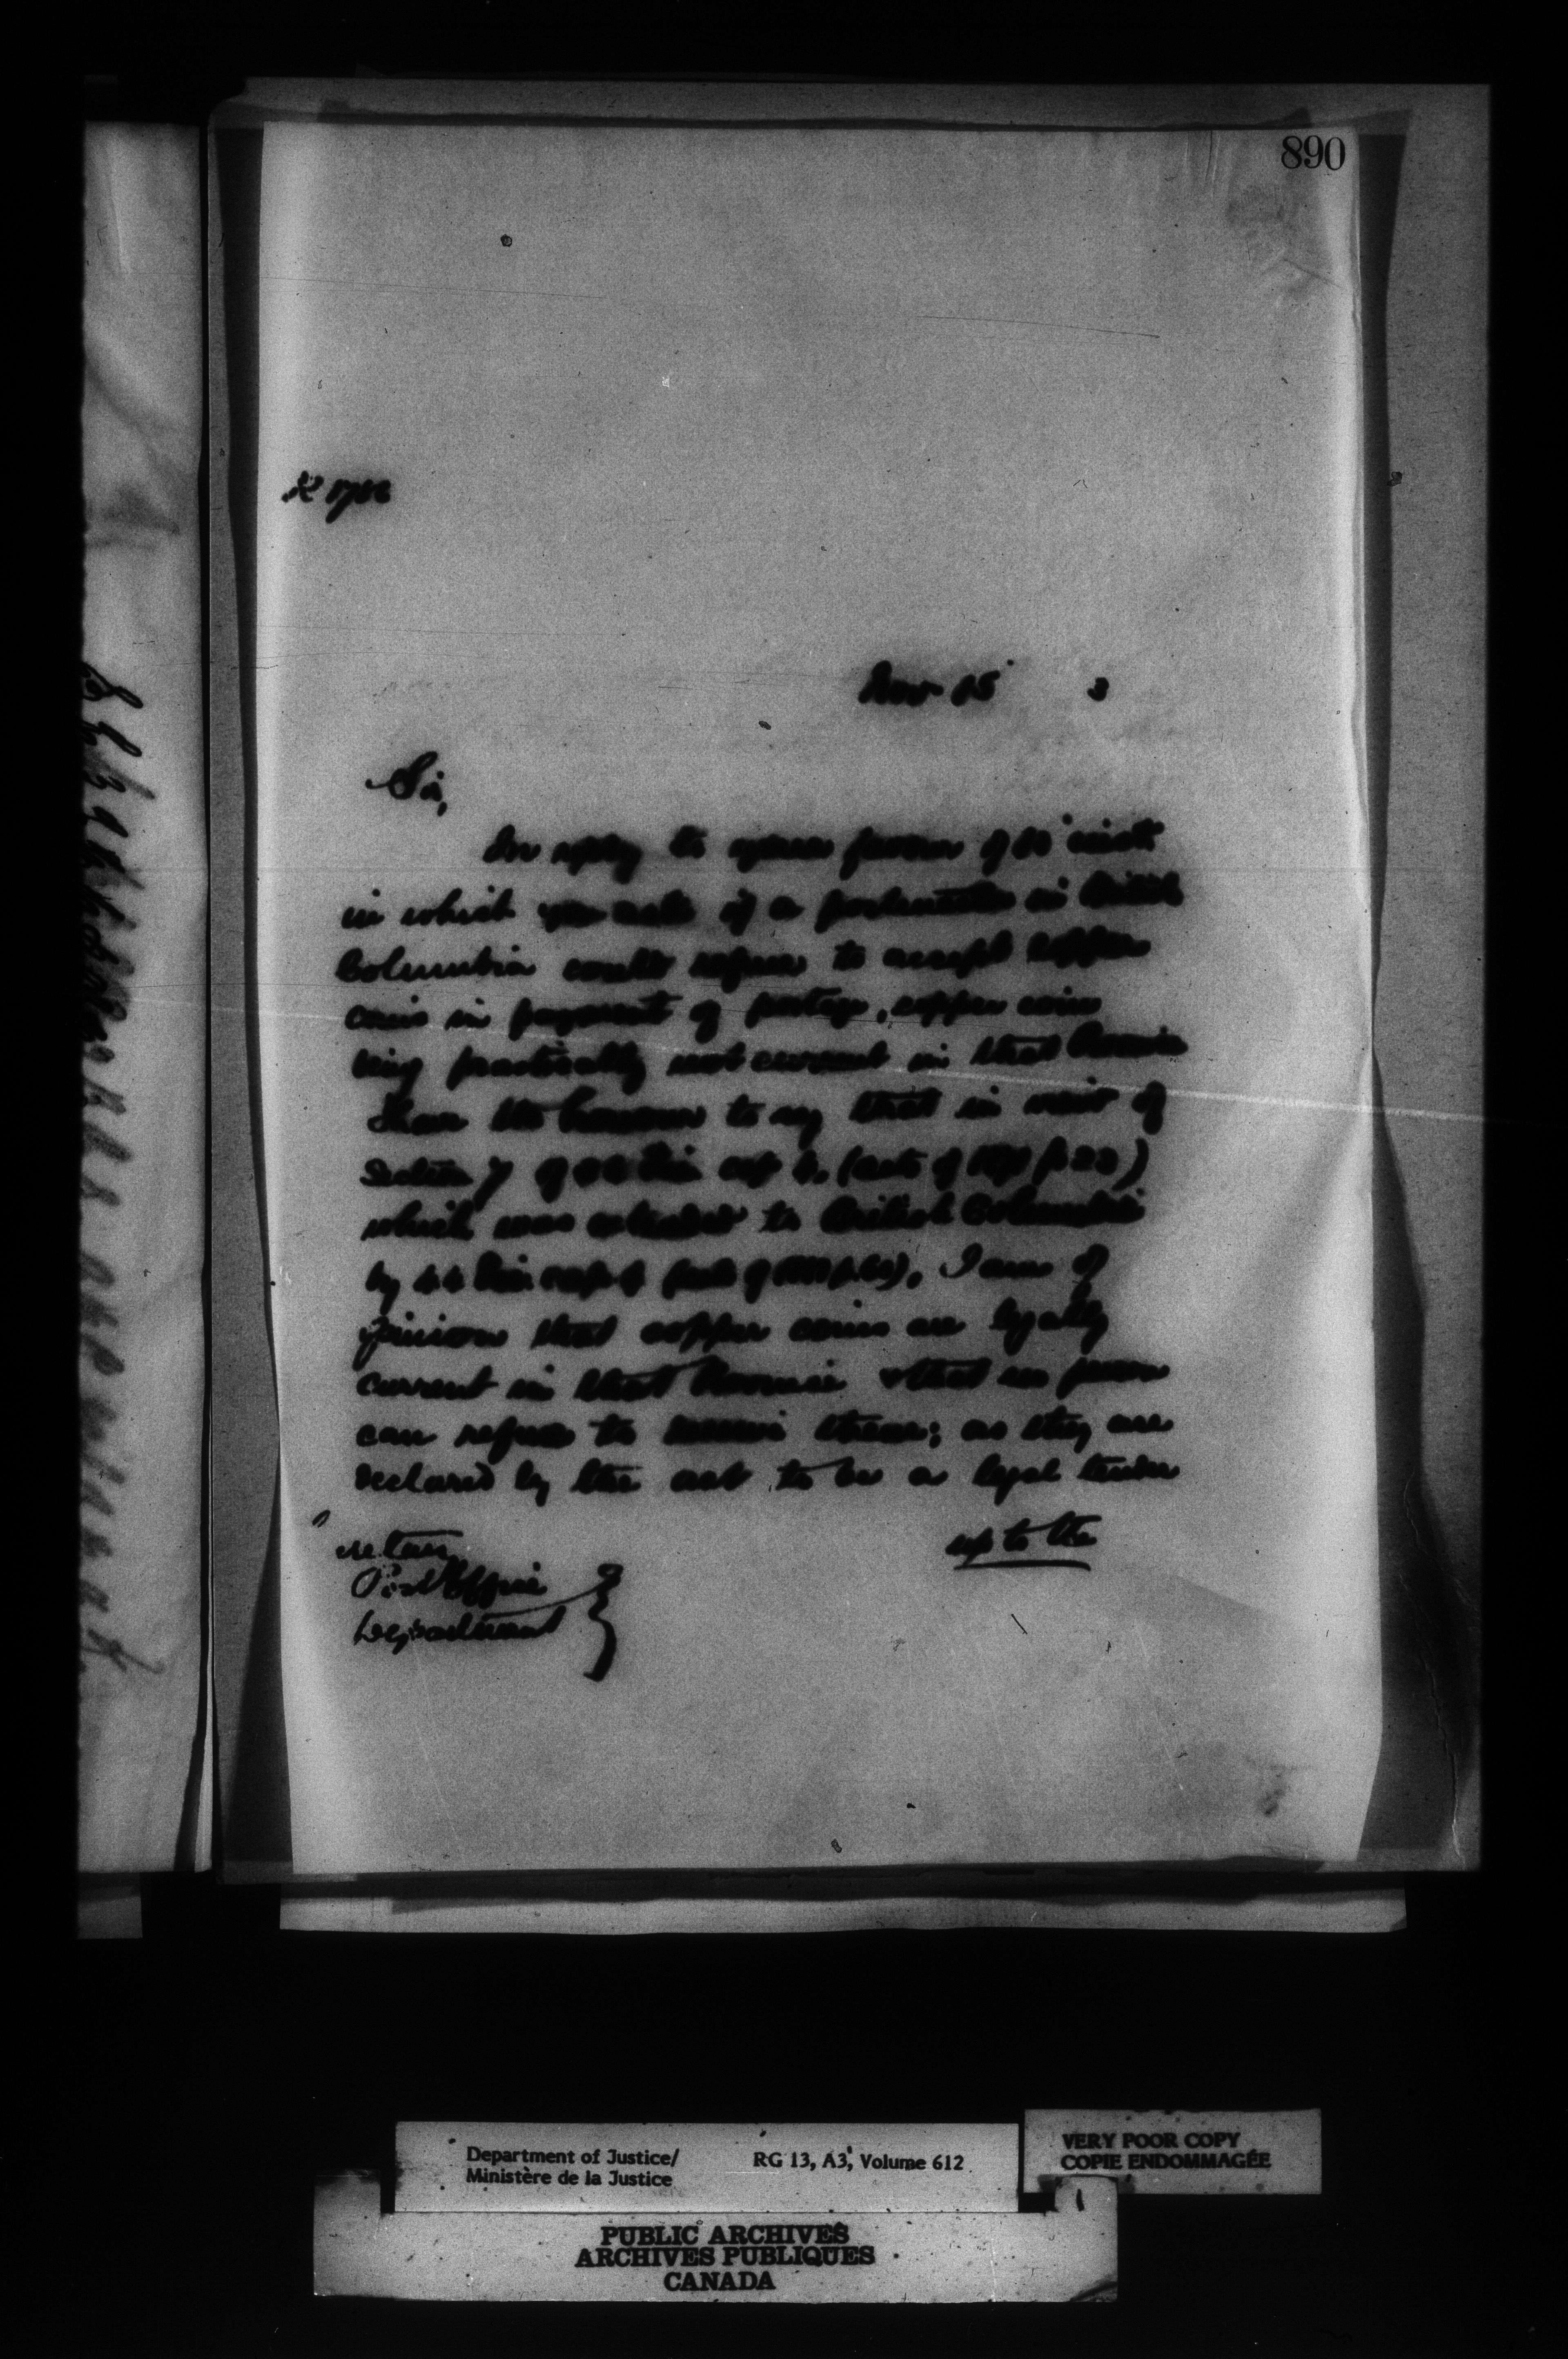 890
Nov 15 3
Sir,
In reply to your favour of inst.
in which you ask if a postmaster in British
Columbia could refuse to accept copper
coins in payment of postage, copper coins
being practically not current in that Province
I have the honour to say that in view of
section 7 of Vic cap 4. (acts of p 22)
which was extended to British Columbia
by 44 Vic cap 4 I am of
opinion that copper coins are legally
current in that Province & that no person
can refuse to receive them; as they are
declared by the act to be a legal tender
up to the
Post Office
Department
Department of Justice/
Ministère de la Justice
RG 13, A3, Volume 612
VERY POOR COPY
COPIE ENDOMMAGÉE
PUBLIC ARCHIVES
ARCHIVES PUBLIQUES
CANADA